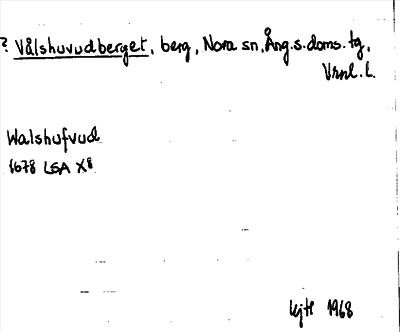 ? Vålshuvudberget, berg, Nora sn, Ång.s. doms. tg,
Vrnl. l.
Walshufvud
1678 LSA X8
1968